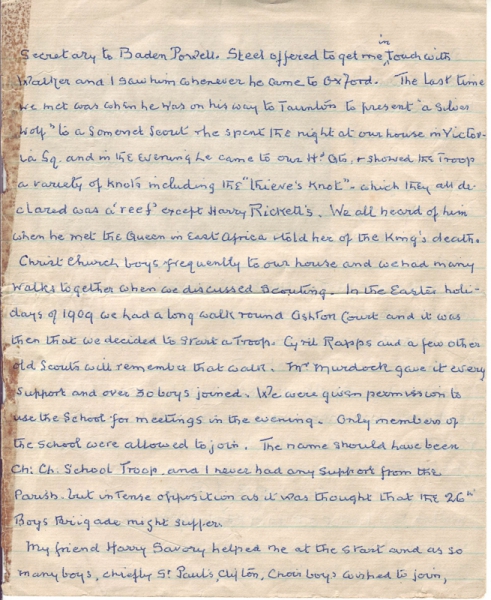 Secretary to Baden Powell. Steel offered to get me in touch with
Walker and I saw him whenever he came to Oxford. The last time
we met was when he was on his way to Taunton to present "a Silver
Wolf" to a Somerset Scout & he spent the night at our house in Victor-
ia Sq. and in the evening he came to our Hd Qts, & showed the Troop
a variety of knots including the "thieve's knot" - which they all de-
clared was a 'reef' except Harry Rickett's. We all heard of him
when he met the Queen in East Africa & told her of the King's death.
Christ Church boys frequently to our house and we had many
walks together when we discussed scouting. In the Easter holi-
days of 1909 we had a long walk round Ashton Court and it was
then that we decided to start a Troop. Cyril Rapps and a few other
old Scouts will remember that walk. Mr Murdock gave it every
support and over 30 boys joined. We were given permission to
use the School for meetings in the evening. Only members of
the school were allowed to join. The name should have been
Ch: Ch: School Troop, and I never had any support from the
Parish. but intense opposition as it was thought that the 26th
Boys Brigade might suffer.
My friend Harry Savory helped me at the start and as so
many boys, chiefly St Paul's, Clifton, Choir boys wished to join,